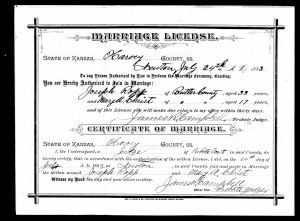 MARRIAGE LICENSE.
STATE OF KANSAS, Harvey COUNTY, SS.
Newton July 24th 1883
To any Person Authorized by Law to Perform the Marriage Ceremony, Greeting:
You are Hereby Authorized to Join in Marriage:
Joseph Ropp of Butler County aged 33 years
and Mary A. Christ of aged 17 years,
and of this License you will make due return to my office within thirty days.
James R. Campbell Probate Judge.
CERTIFICATE OF MARRIAGE.
STATE OF KANSAS, Harvey COUNTY, SS.
I, the Undersigned, Judge of Probate Court in said County, do
hereby certify, that in accordance with the authorization of the within License, I did, on the 24th day of
July A. D. at Newton in said County, join and unite in Marriage
the within named Joseph Ropp and Mary A. Christ
Witness my Hand the day and year before written.
James R. Campbell
Probate Judge